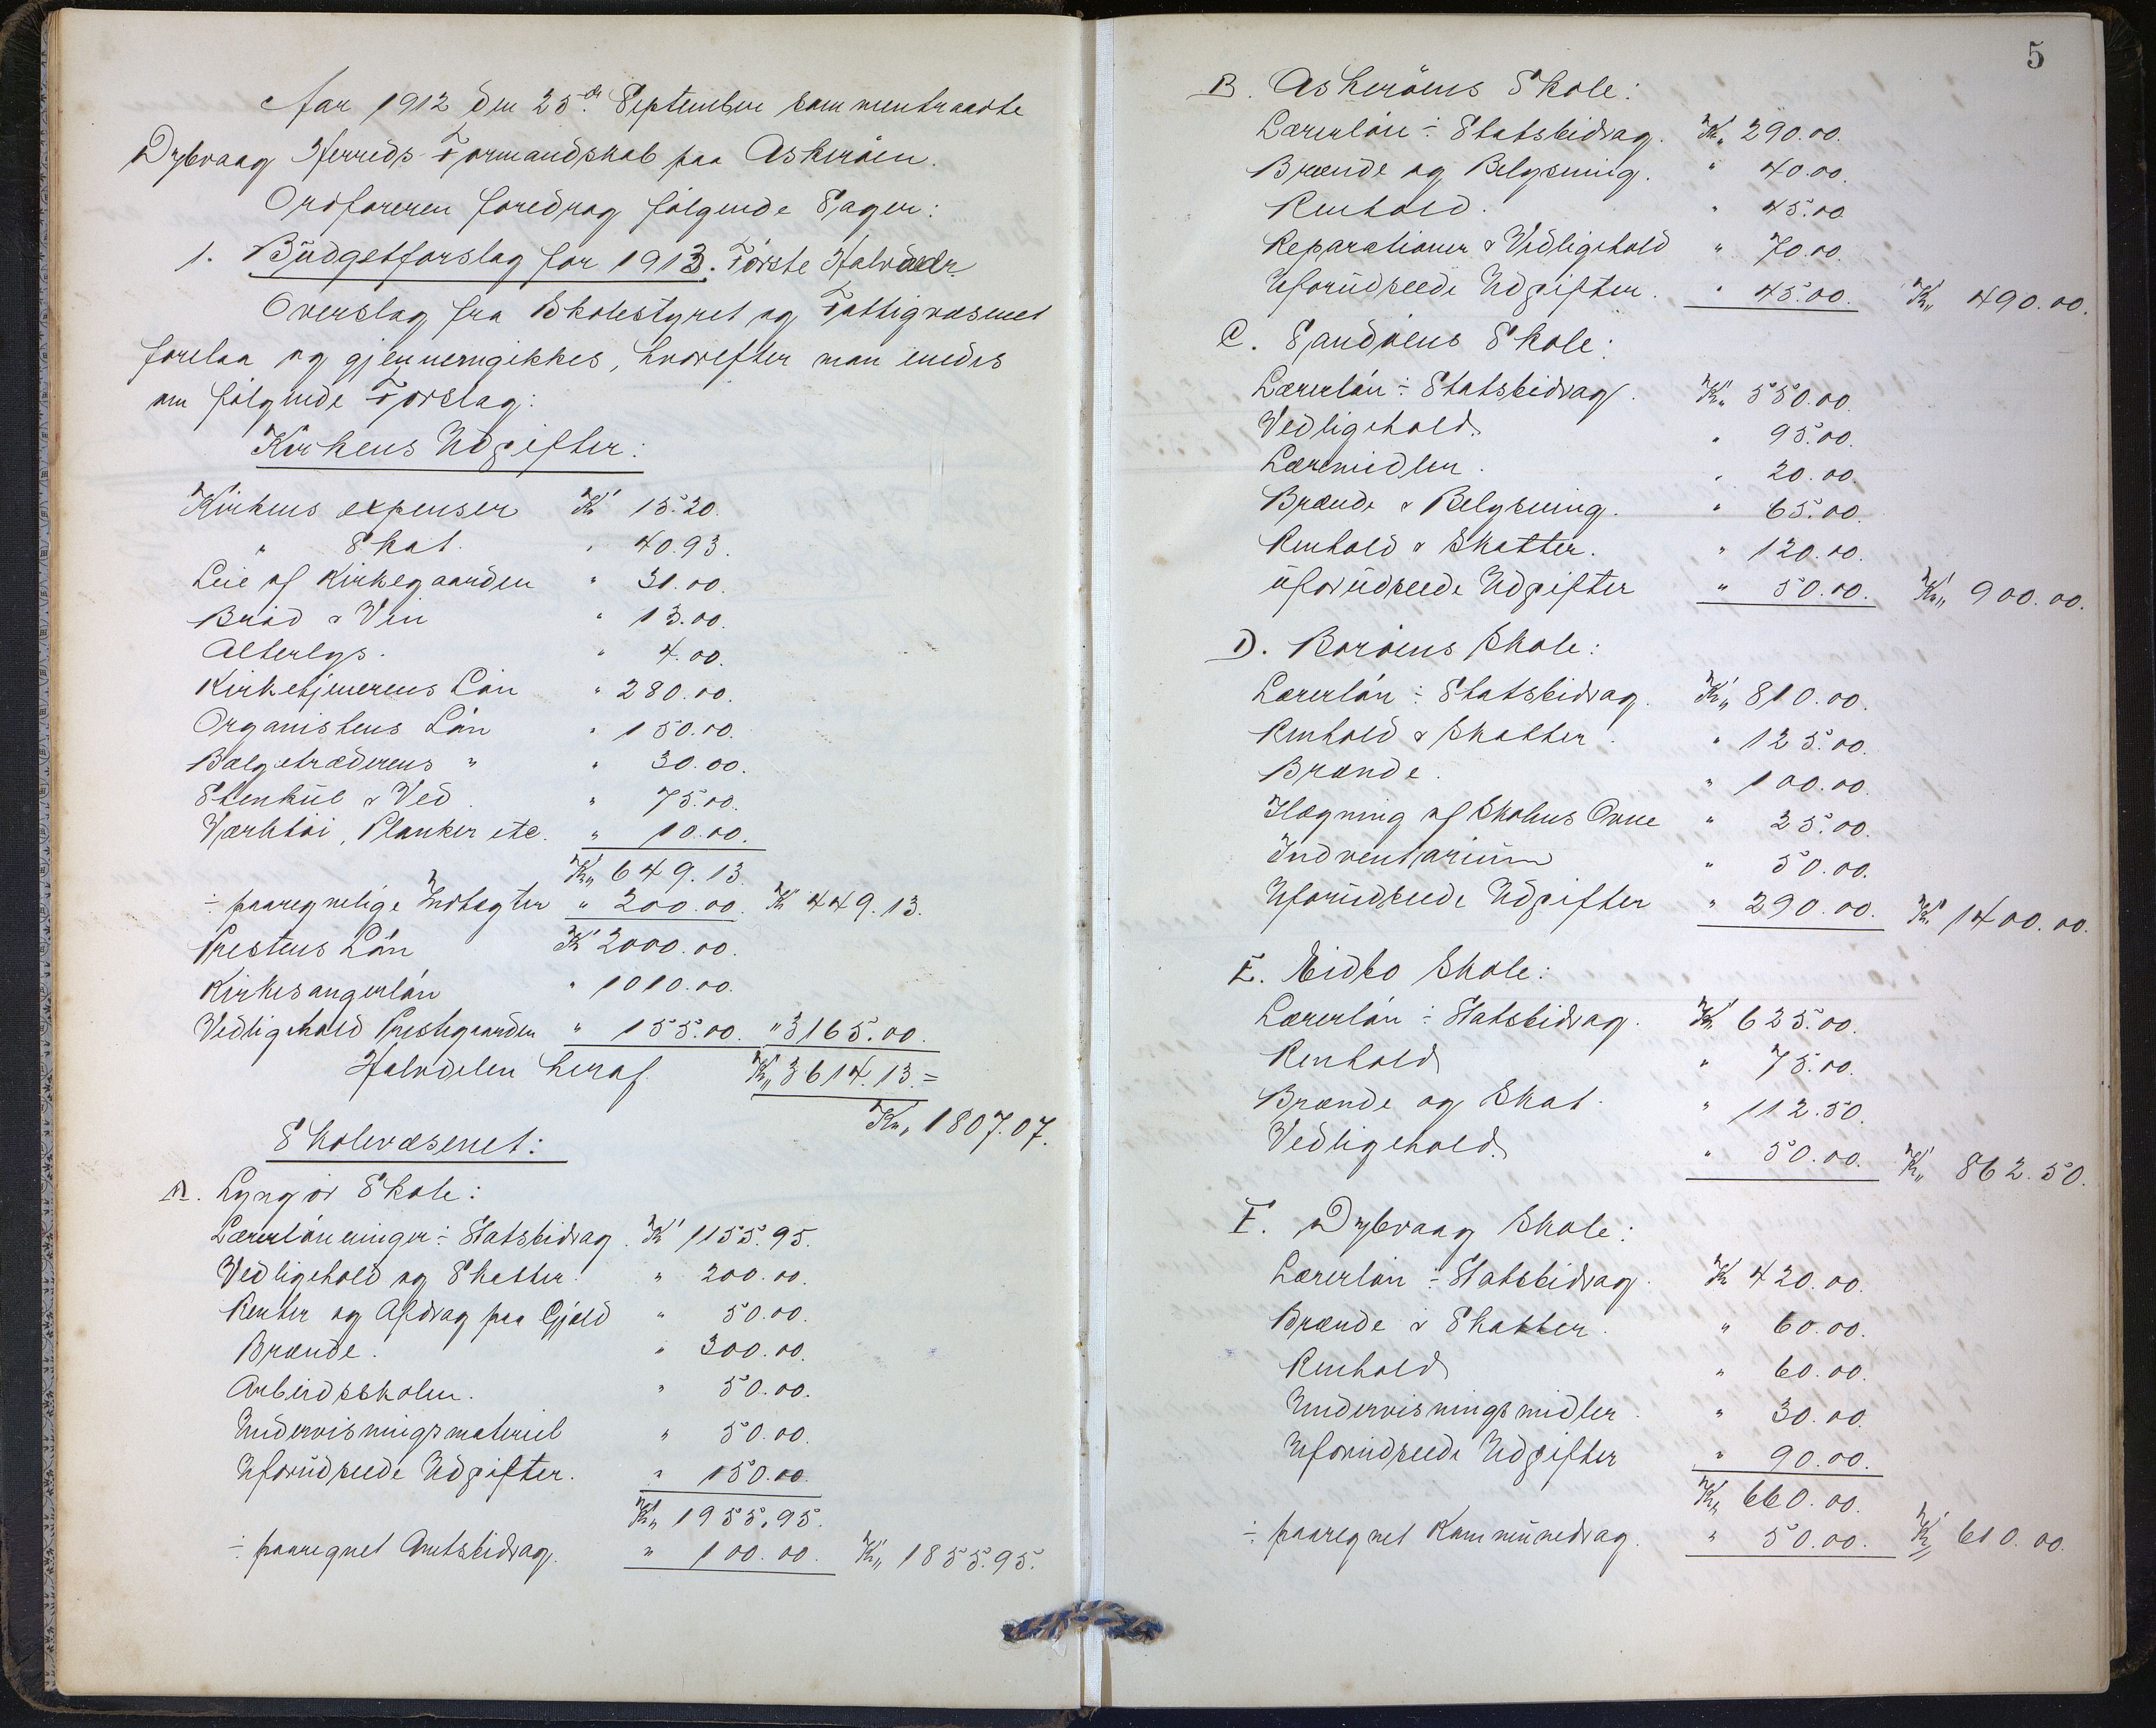 Aar 1912 den 25de September sammentraadte
Dybvaag Herreds Formandskab paa Askerøen.
Ordføreren foredrog følgende Sager:
1. Büdgetforslag for 1913. Første Halvaar
Overslag fra Skolestyret og Fattigvæsenet
forelaa og gjennemgikkes, hvorefter man enedes
om følgende Forslag:
Kirkens Udgifter:
Kirkens expenser Kr 15.20.
" Skat. " 40.93.
Leie af Kirkegaarden " 31.00.
Brød & Vin " 13.00.
Alterlys. " 4.00.
Kirketjenerens Løn " 280.00.
Organistens Løn " 150.00.
Bælgetræderens " " 30.00.
Stenkül & Ved. " 75.00.
Værktøi, Planker etc. " 10.00.
Kr„ 649.13.
÷ paaregnelige Indtægter " 200.00. Kr 449.13.
Prestens Løn Kr 2000.00.
Kirkesangerløn " 1010.00.
Vedligehold Prestegaarden " 155.00. " 3165.00.
Halvdelen heraf. Kr„ 3614.13. =
Kr„ 1807.07.
Skolevæsenet:
A. Lyngør Skole:
Lærerlønninger ÷ Statsbidrag. Kr 1155.95.
Vedligehold og Skatter. " 200.00.
Renter og Afdrag paa Gjæld " 50.00.
Brænde. " 300.00.
Arbeidsskolen. " 50.00.
Undervisningsmateriel " 50.00.
Uforüdseede Udgifter. " 150.00.
Kr„ 1955.95.
÷ paaregnet Amtsbidrag. " 100.00. Kr„ 1855.95.
5
B. Askerøens Skole:
Lærerløn ÷ Statsbidrag. Kr„ 290.00.
Brænde og Belysning. " 40.00.
Renhold. " 45.00
Reparationer & Vedligehold " 70.00.
Uforüdseede Udgifter. " 45.00. Kr„ 490.00.
C. Sandøens Skole:
Lærerløn ÷ Statsbidrag. Kr„ 550.00.
Vedligehold. " 95.00.
Læremidler. " 20.00.
Brænde & Belysning. " 65.00.
Renhold & Skatter. " 120.00.
üforüdseede Udgifter " 50.00. Kr„ 900.00.
D. Borøens Skole:
Lærerløn ÷ Statsbidrag. Kr„ 810.00.
Renhold & Skatter. " 125.00.
Brænde. " 100.00.
Ilægning af Skolens Ovne " 25.00.
Indventariüm " 50.00.
Uforüdseede Udgifter " 290.00. Kr„ 1400.00.
E. Eidbo Skole:
Lærerløn ÷ Statsbidrag. Kr 625.00.
Renhold " 75.00.
Brænde og Skat. " 112.50.
Vedligehold. " 50.00. Kr„ 862.50.
F. Dybvaag Skole:
Lærerløn ÷ Statsbidrag. Kr 420.00.
Brænde & Skatter. " 60.00.
Renhold " 60.00.
Undervisningsmidler. " 30.00.
Uforüdseede Udgifter " 90.00.
Kr„ 660.00.
÷ paaregnet Kommünedrag. " 50.00. Kr„ 610.00.